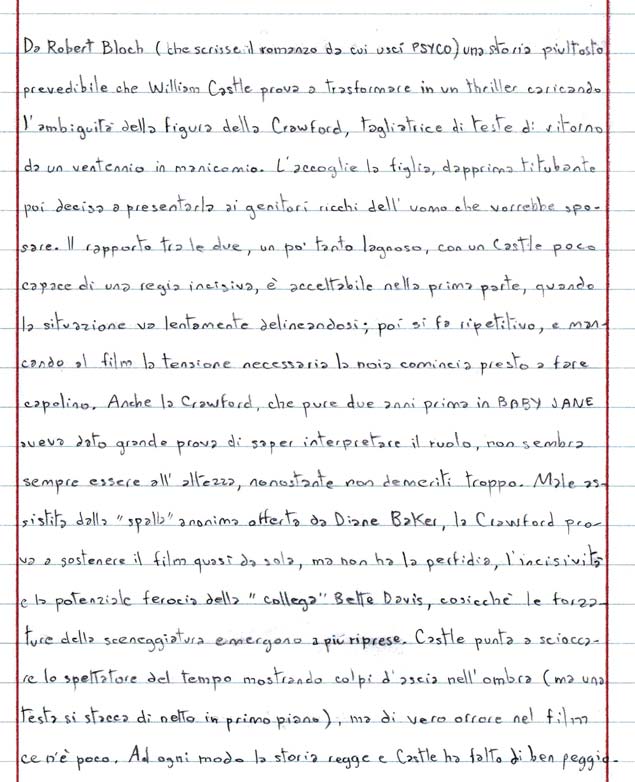 Da Robert Bloch (che scrisse il romanzo da cui uscì PSYCO) una storia piuttosto
prevedibile che William Castle prova a trasformare in un thriller caricando
l'ambiguità della figura della Crawford, tagliatrice di teste di ritorno
da un ventennio in manicomio. L'accoglie la figlia, dapprima titubante
poi decisa a presentarla ai genitori ricchi dell'uomo che vorrebbe spo-
sare. Il rapporto tra le due, un po' tanto lagnoso, con un Castle poco
capace di una regia incisiva, è accettabile nella prima parte, quando
la situazione va lentamente delineandosi; poi si fa ripetitivo, e man-
cando al film la tensione necessaria la noia comincia presto a fare
capolino. Anche la Crawford, che pure due anni prima in BABY JANE
aveva dato grande prova di saper interpretare il ruolo, non sembra
sempre essere all'altezza, nonostante non demeriti troppo. Male as-
sistita dalla "spalla" anonima offerta da Diane Baker, la Crawford pro-
va a sostenere il film quasi da sola, ma non ha la perfidia, l'incisività
e la potenziale ferocia della "collega" Bette Davis, cosicchè le forza-
ture della sceneggiatura emergono a più riprese. Castle punta a sciocca-
re lo spettatore del tempo mostrando colpi d'ascia nell'ombra (ma una
testa si stacca di netto in primo piano), ma di vero orrore nel film
ce n'è poco. Ad ogni modo la storia regge e Castle ha fatto di ben peggio.